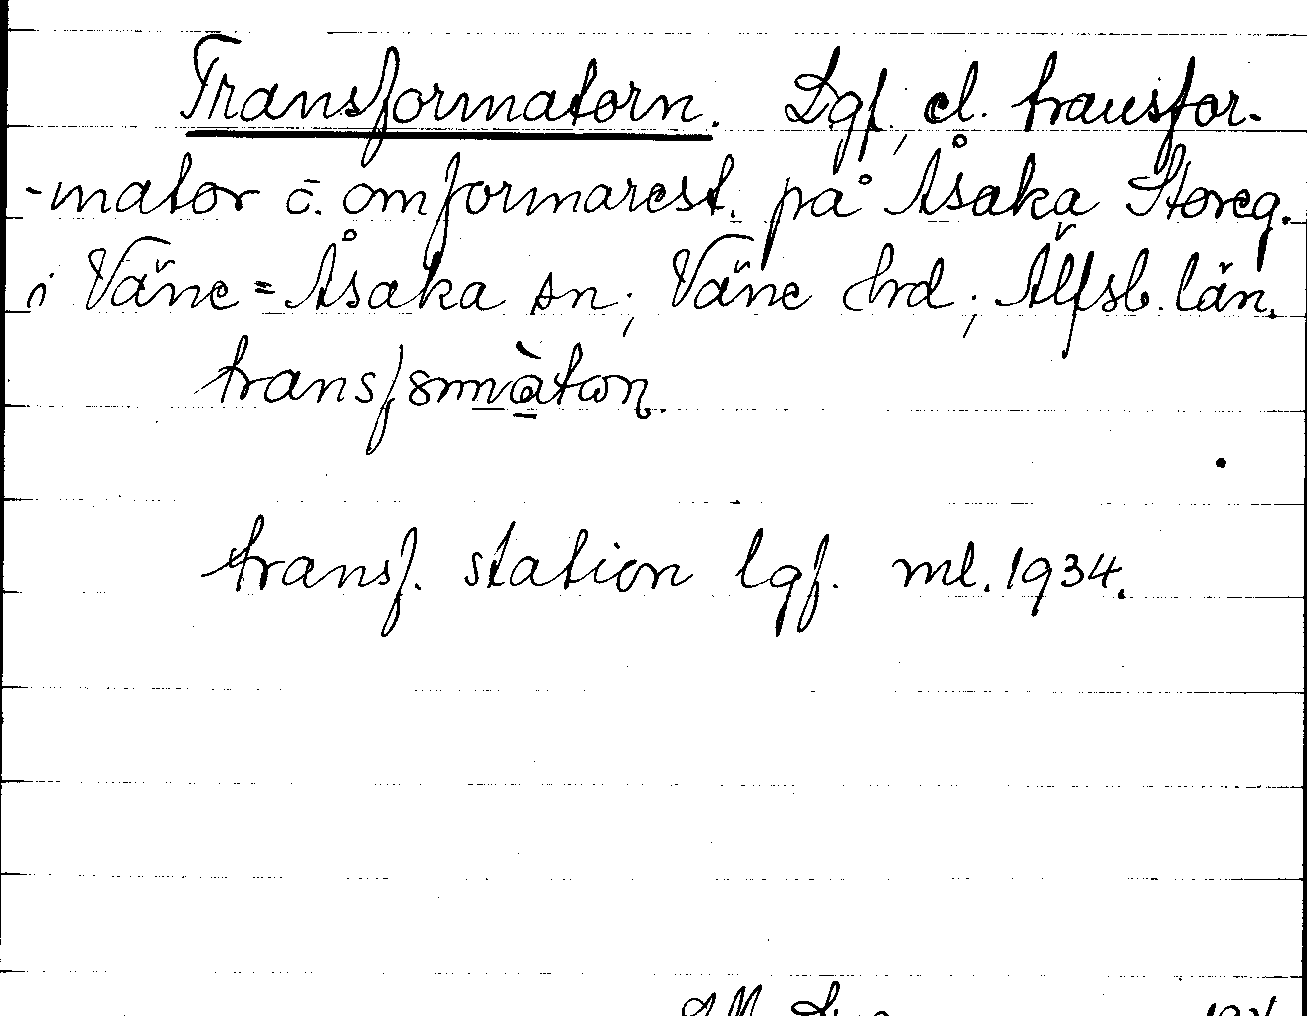 Transformatorn. Lgf, el. transfor-
-mator o. omformarest. på Åsaka Storeg.
i Väne=Åsaka sn; Väne hrd; Älfsb. län.
transf
transf. station lgf. ml. 1934.